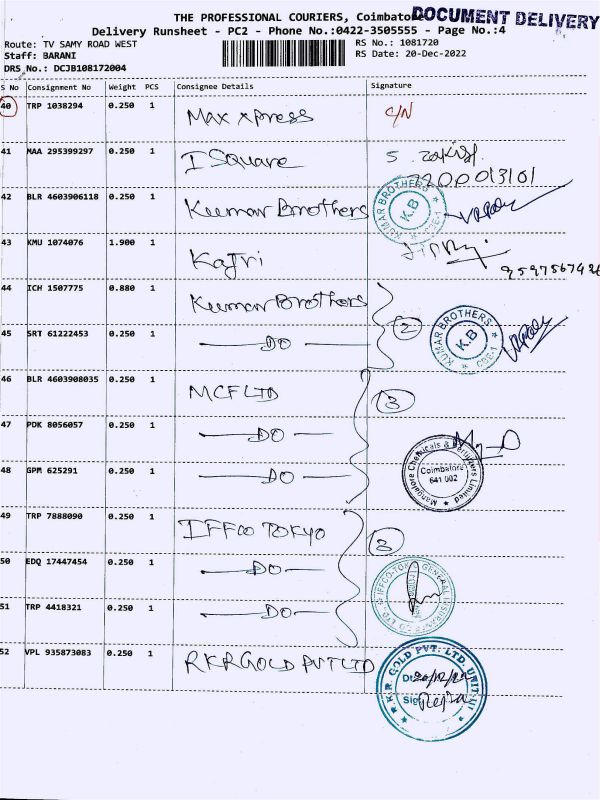 THE PROFESSIONAL COURIERS, Coimbato
DOCUMENT DELIVERY
Delivery Runsheet - PC2 - Phone No.:0422-3505555 - Page No.:4
Route: TV SAMY ROAD WEST
RS No.: 1081720
Staff: BARANI
RS Date: 20-Dec-2022
DRS No.: DCJB108172004
S No Consignment No Weight PCS Consignee Details Signature
40 TRP 1038294 0.250 1 Max xpress C/N
41 MAA 295399297 0.250 1 I Square
42 BLR 4603906118 0.250 1 Kumar Brothers
KUMAR BROTHERS K.B CBE-1
43 KMU 1074076 1.900 1 Kajri
44 ICH 1507775 0.880 1 Kumar Brothers
45 SRT 61222453 0.250 1 DO
2
KUMAR BROTHERS K.B CBE-1
46 BLR 4603908035 0.250 1 MCF LTD
3
47 PDK 8056057 0.250 1 DO
48 GPM 625291 0.250 1 DO
Mangalore Chemicals & Fertilizers Limited
Coimbatore
641 002
49 TRP 7888090 0.250 1 IFFCO TOKYO
3
50 EDQ 17447454 0.250 1 DO
51 TRP 4418321 0.250 1 DO
52 VPL 935873083 0.250 1 RKR GOLD PVT LTD